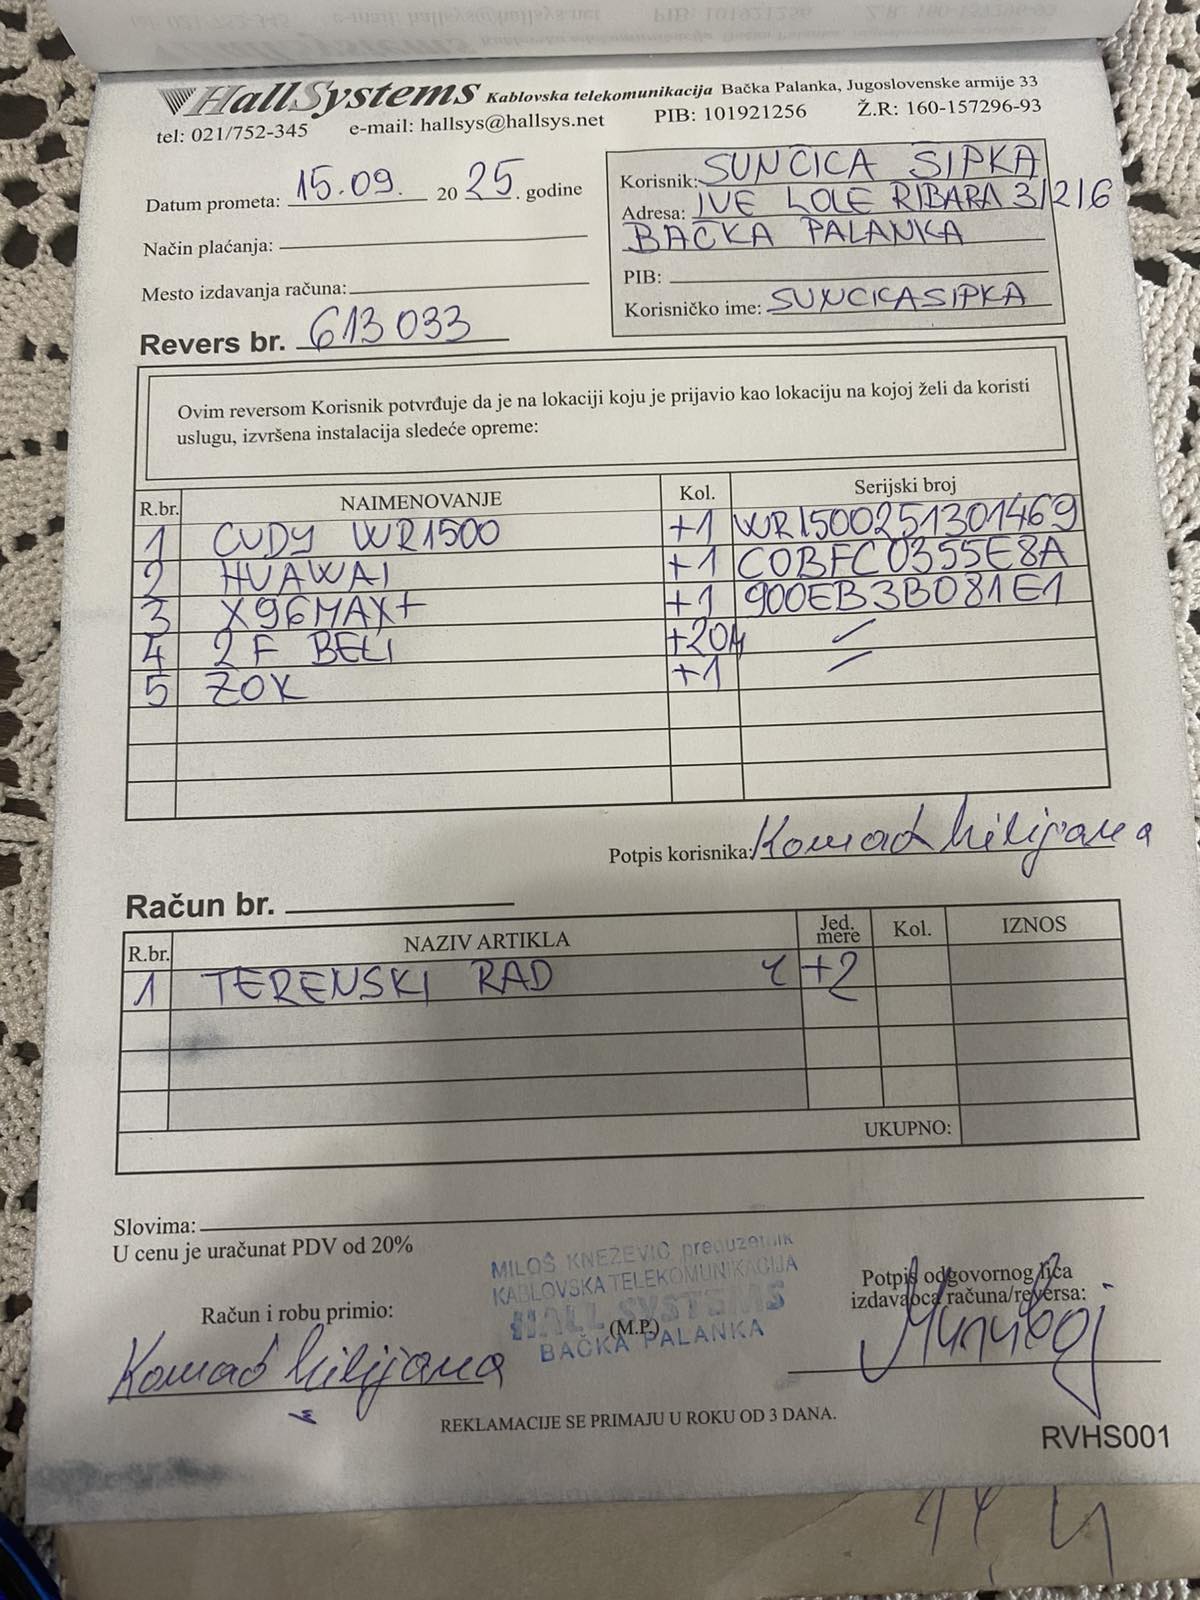 HallSystems Kablovska telekomunikacija Bačka Palanka, Jugoslovenske armije 33
tel: 021/752-345 e-mail: hallsys@hallsys.net PIB: 101921256 Ž.R: 160-157296-93
Datum prometa: 15.09. 20 25. godine
Način plaćanja:
Mesto izdavanja računa:
Revers br. 613033
Korisnik: SUNČICA ŠIPKA
Adresa: IVE LOLE RIBARA 3/2/6
BAČKA PALANKA
PIB:
Korisničko ime: SUNCICASIPKA
Ovim reversom Korisnik potvrđuje da je na lokaciji koju je prijavio kao lokaciju na kojoj želi da koristi
uslugu, izvršena instalacija sledeće opreme:
R.br. NAIMENOVANJE Kol. Serijski broj
1 CUDY WR1500 +1 WR1500251301469
2 HUAWAI +1 C0BFC0355E8A
3 X96MAX+ +1 900EB3B081E1
4 2F BELI +20M
5 ZOK +1
Potpis korisnika: Konrad Milijana
Račun br.
R.br. NAZIV ARTIKLA Jed. mere Kol. IZNOS
1 TERENSKI RAD +2
UKUPNO:
Slovima:
U cenu je uračunat PDV od 20%
MILOŠ KNEŽEVIĆ preduzetnik
KABLOVSKA TELEKOMUNIKACIJA
HALL SYSTEMS
(M.P.)
BAČKA PALANKA
Račun i robu primio:
Konrad Milijana
Potpis odgovornog lica
izdavaoca računa/reversa:
REKLAMACIJE SE PRIMAJU U ROKU OD 3 DANA.
RVHS001